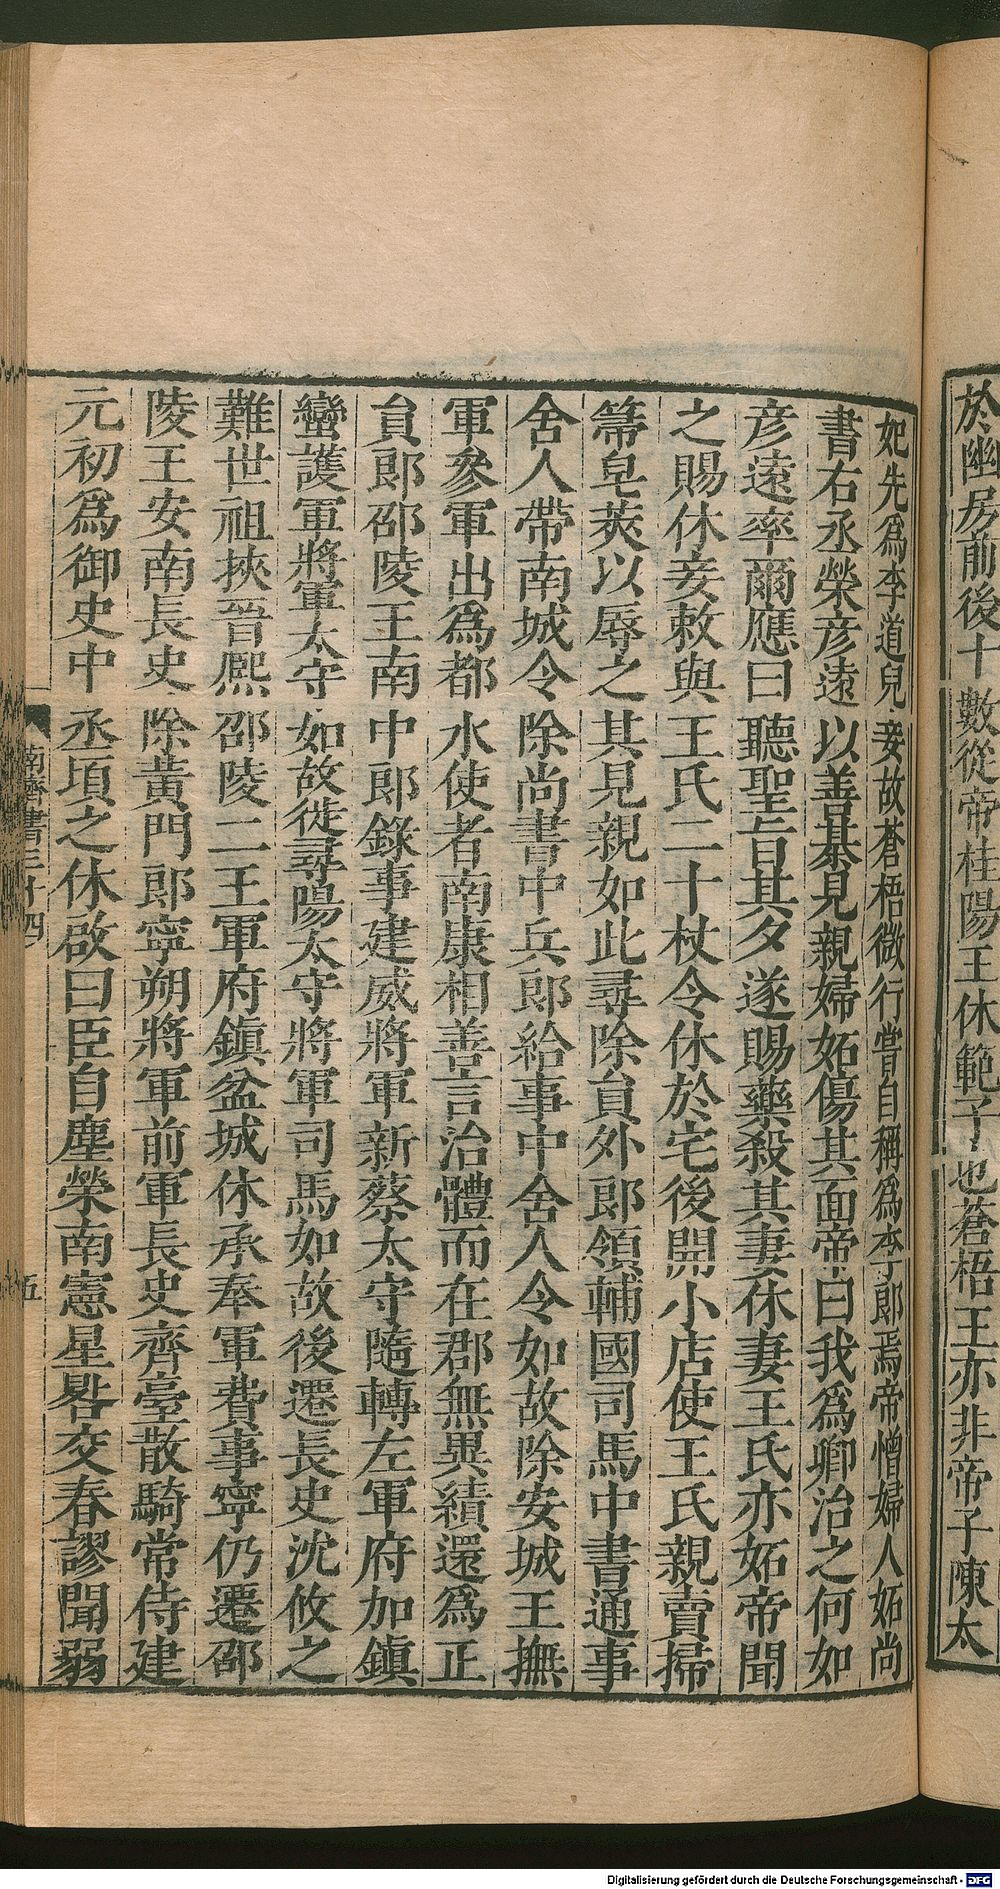 於幽房前後十數從帝桂陽王休範子也蒼梧王亦非帝子陳太
妃先為李道兒妾故蒼梧微行嘗自稱為李郎焉帝憎婦人妬尚
書右丞榮彦遠以善棊見親婦妬傷其面帝曰我為卿治之何如
彦遠率爾應曰聽聖旨其夕遂賜藥殺其妻休妻王氏亦妬帝聞
之賜休妾敕與王氏二十杖令休於宅後開小店使王氏親賣掃
箒皂莢以辱之其見親如此尋除負外郎領輔國司馬中書通事
舍人帶南城令除尚書中兵郎給事中舍人令如故除安城王撫
軍參軍出為都水使者南康相善言治體而在郡無異績還為正
貟郎邵陵王南中郎錄事建威將軍新蔡太守隨轉左軍府加鎮
蠻護軍將軍太守如故徙尋陽太守將軍司馬如故後遷長史沈攸之
難世祖挾晉熙邵陵二王軍府鎮盆城休承奉軍費事寧仍遷邵
陵王安南長史除黃門郎寧朔將軍前軍長史齊臺散騎常侍建
元初為御史中丞頃之休啟曰臣自塵榮南憲星晷交春謬聞弱
南齊書三十四
五
Digitalisierung gefördert durch die Deutsche Forschungsgemeinschaft - DFG